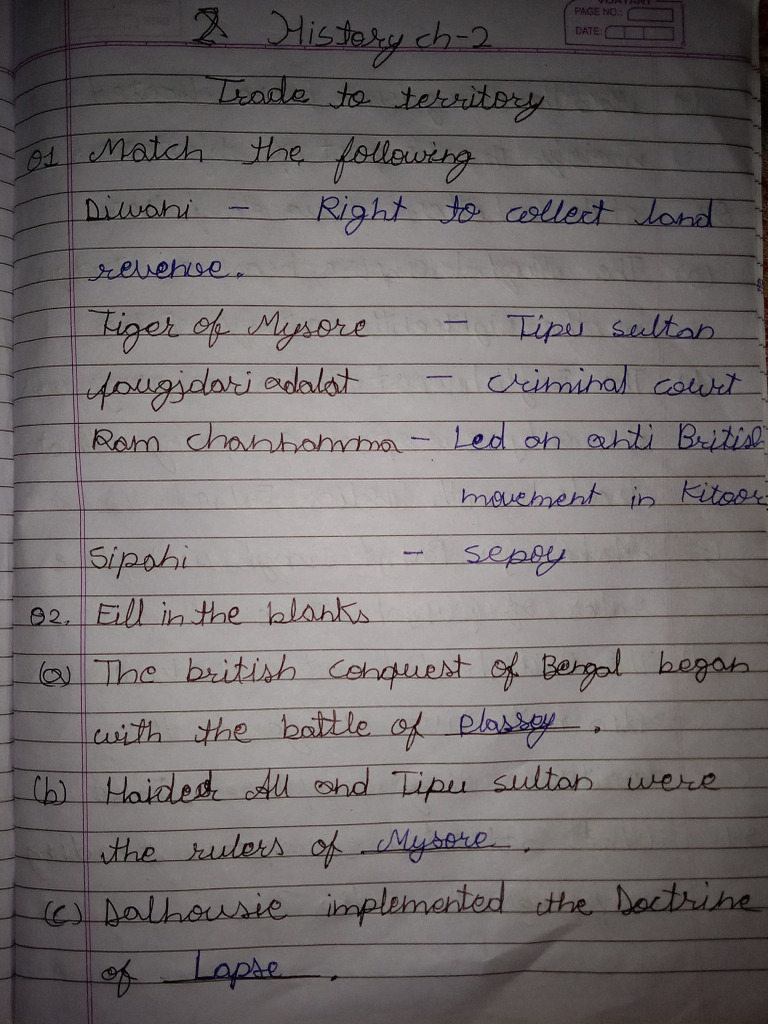 2 History ch-2
PAGE NO.:
DATE:
Trade to territory
Q1 Match the following
Diwani - Right to collect land
revenue.
Tiger of Mysore - Tipu sultan
fougjdari adalat - criminal court
Ram channamma - Led an anti British
movement in Kitoor
Sipahi - sepoy
Q2. Fill in the blanks
(a) The british conquest of Bengal began
with the battle of plassey.
(b) Haider Ali and Tipu sultan were
the rulers of Mysore.
(c) Dalhousie implemented the Doctrine
of Lapse.